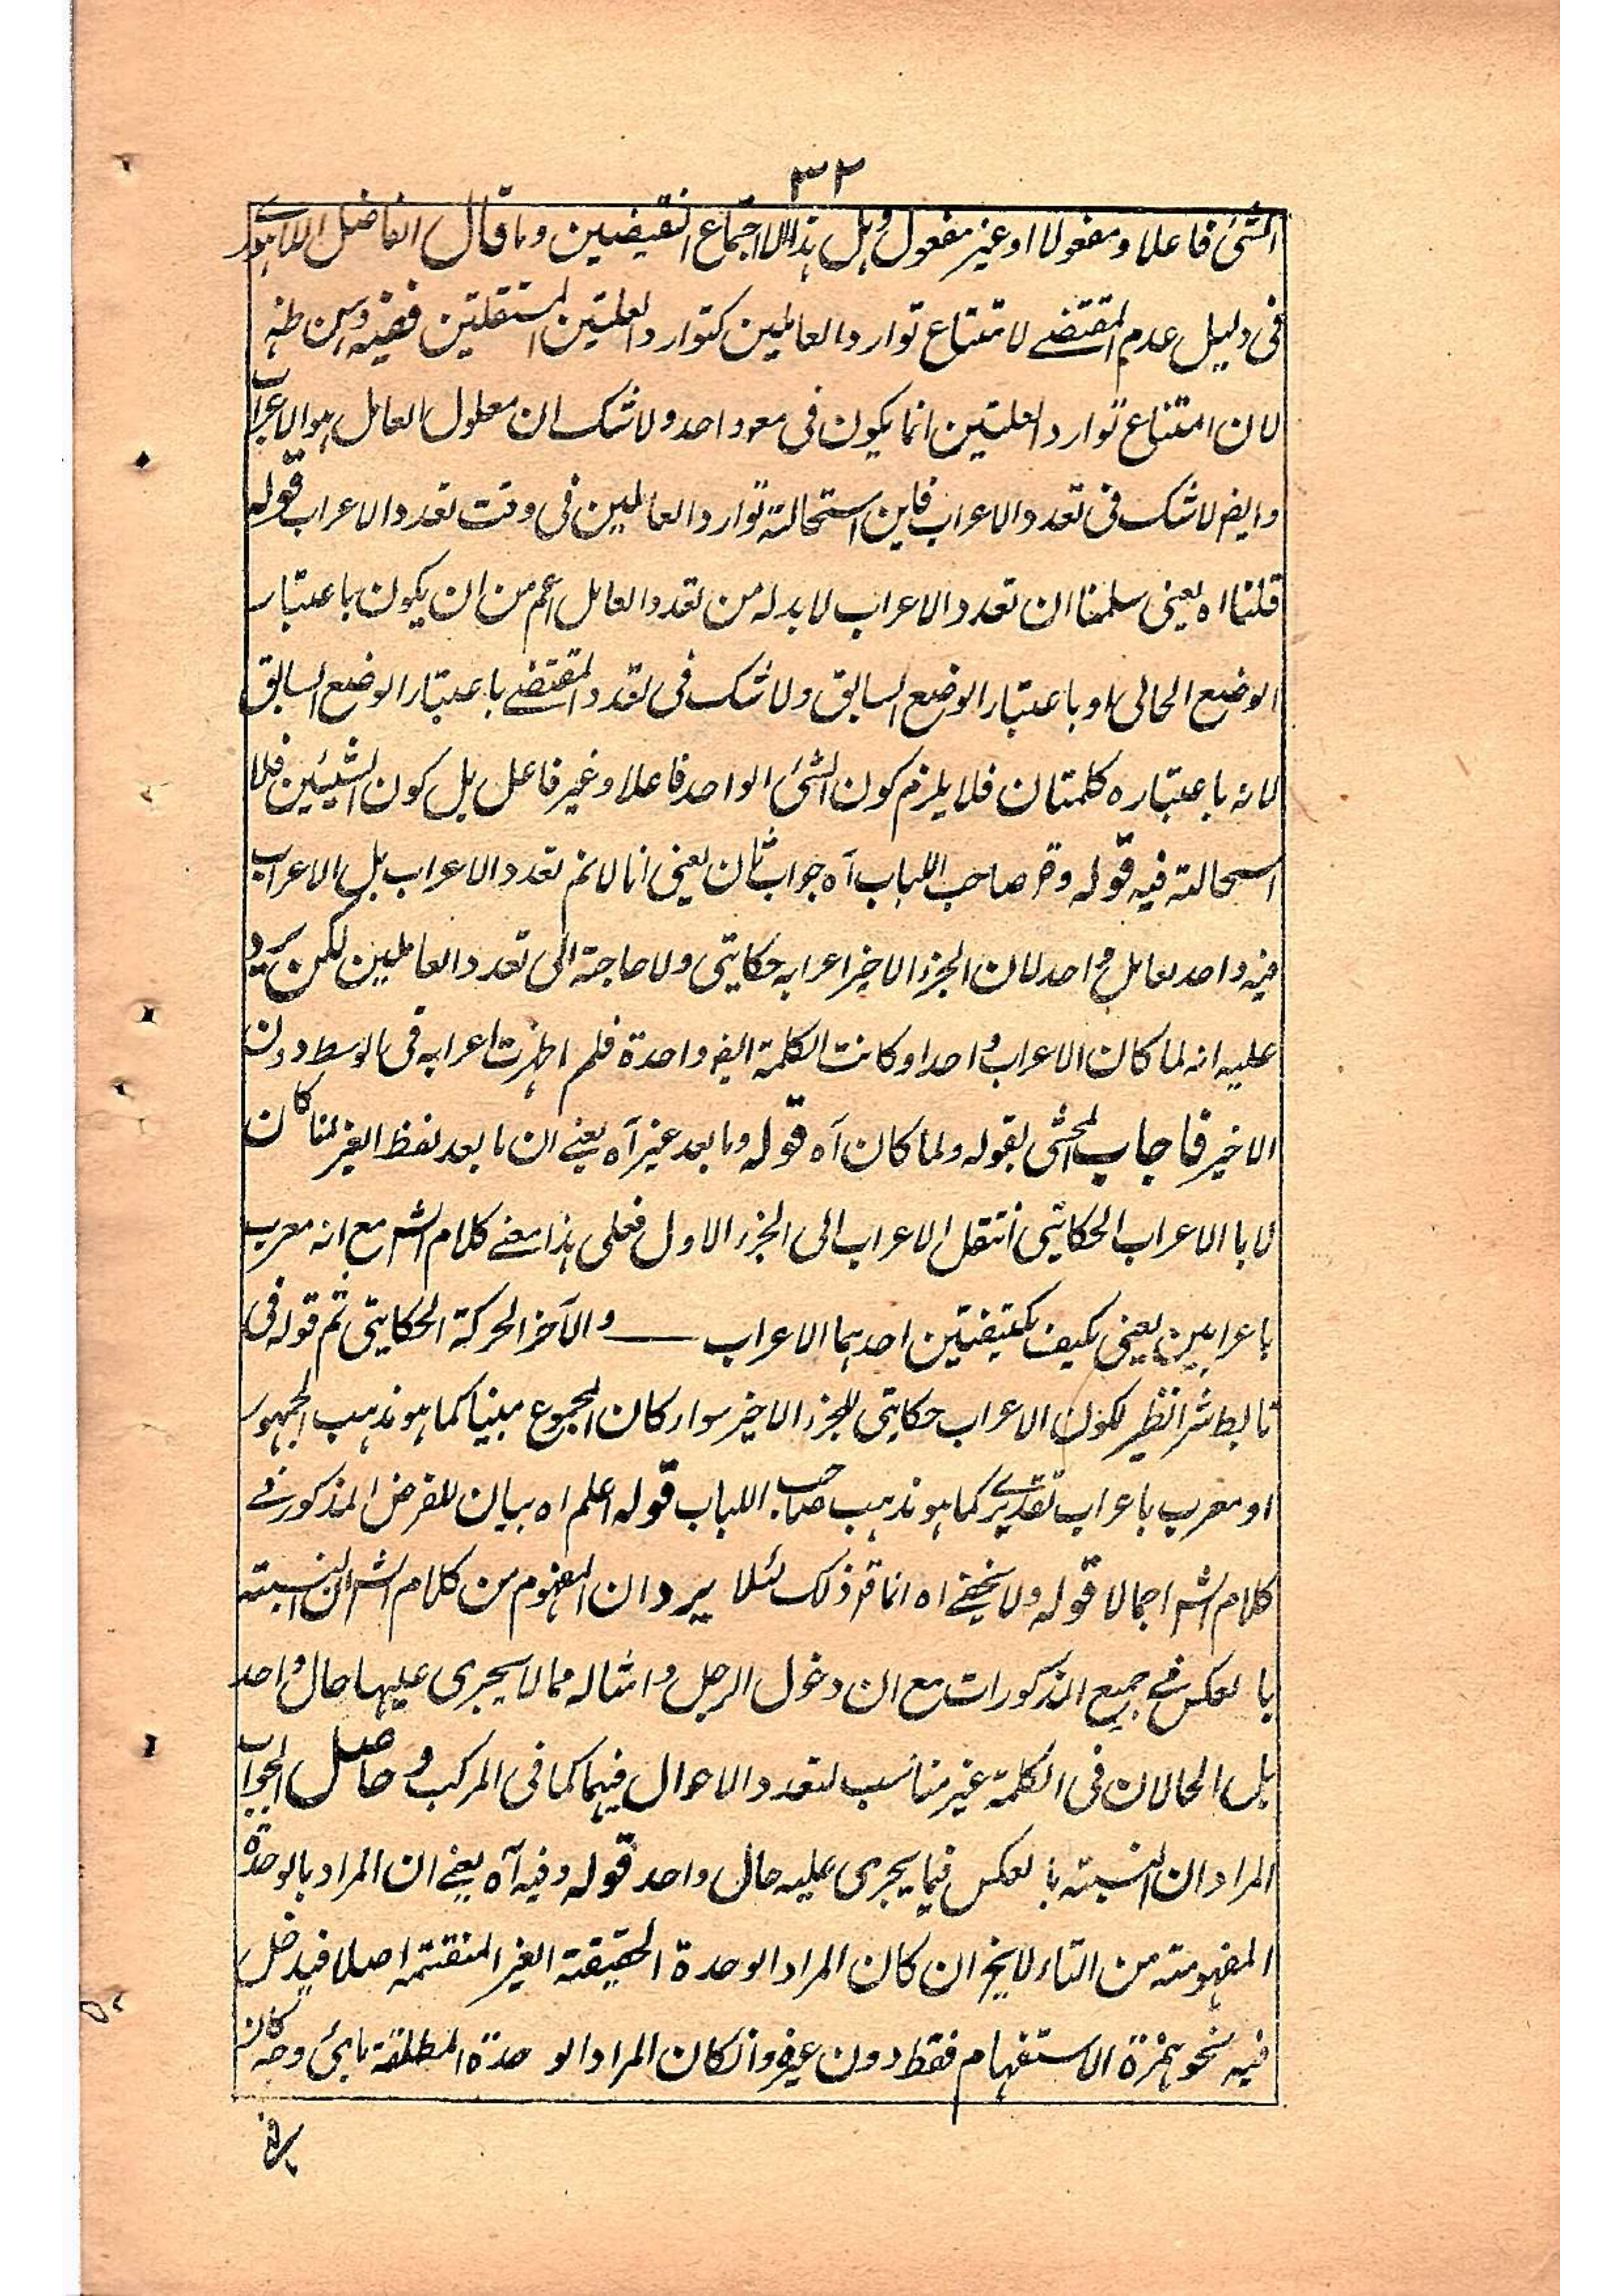 ٣٢
الشئ فاعلا ومفعولا او غير مفعول وہل ہذا الا اجتماع النقيضين وما قال الفاضل اللاہورى
فى دليل عدم المقتضے لامتناع توارد العاملين كتوارد العلتين المستقلتين ففيه وہن
لان امتناع توارد العلتين انما يكون فى مع واحد ولا شك ان معلول العامل ہو الاعراب
وايضا لا شك فى تعدد الاعراب فاين استحالة توارد العاملين فى وقت تعدد الاعراب قوله
قلنا اه يعنى سلمنا ان تعدد الاعراب لا بد له من تعدد العامل اعم من ان يكون باعتبار
الوضع الحالى او باعتبار الوضع السابق ولا شك فى تعدد المقتضے باعتبار الوضع السابق
لانه باعتباره كلمتان فلا يلزم كون الشئ الواحد فاعلا وغير فاعل بل كون الشيئين فلا
استحالة فيه قوله وقر صاحب اللباب آه جواب ثان يعنى انا لا نم تعدد الاعراب بل الاعراب
فيه واحد لعامل واحد لان الجزء الاخير اعرابه حكايتى ولا حاجة الى تعدد العاملين لكن يرد
عليه انه لما كان الاعراب واحدا وكانت الكلمة ايضا واحدة فلم اظہرت اعرابه فى الوسط دون
الاخير فاجاب المحشى بقوله ولما كان آه قوله وما بعد غير آه يعنے ان ما بعد لفظ الغير لما كان
لابا الاعراب الحكايتى انتقل الاعراب الى الجزء الاول فعلى ہذا معنے كلام الشر مع انه معرب
باعرابين يعنى مكيف بكيفيتين احدہما الاعراب ـــــ والآخر الحركة الحكايتى ثم قوله فى
تابط شرا نظير لكون الاعراب حكايتى للجزء الاخير سواء كان المجموع مبنيا كما ہو مذہب الجمہور
او معرب باعراب تقديرے كما ہو مذہب صاحب اللباب قوله اعلم اه بيان للغرض المذكور فے
كلام الشر اجمالا قوله ولا يخفے اه انما قر ذلك لئلا يرد ان المفهوم من كلام الشر ان النسبته
بالعكس فے جميع المذكورات مع ان دخول الرجل وامثاله مما لا يجرى عليہا حال واحد
بل الحالان فى الكلمة غير مناسب لتعدد الاحوال فيہما كما فى المركب وحاصل الجواب
المراد ان النسبته بالعكس فيما يجرى عليه حال واحد قوله وفيه آه يعنے ان المراد بالوحدة
المفہومته من التاء لا يخ ان كان المراد الوحدة الحقيقته الغير المنقسمه اصلا فيدخل
فيه نحو ہمزة الاستفہام فقط دون غيره وان كان المراد الوحدة المطلقة باىئ وجه كان